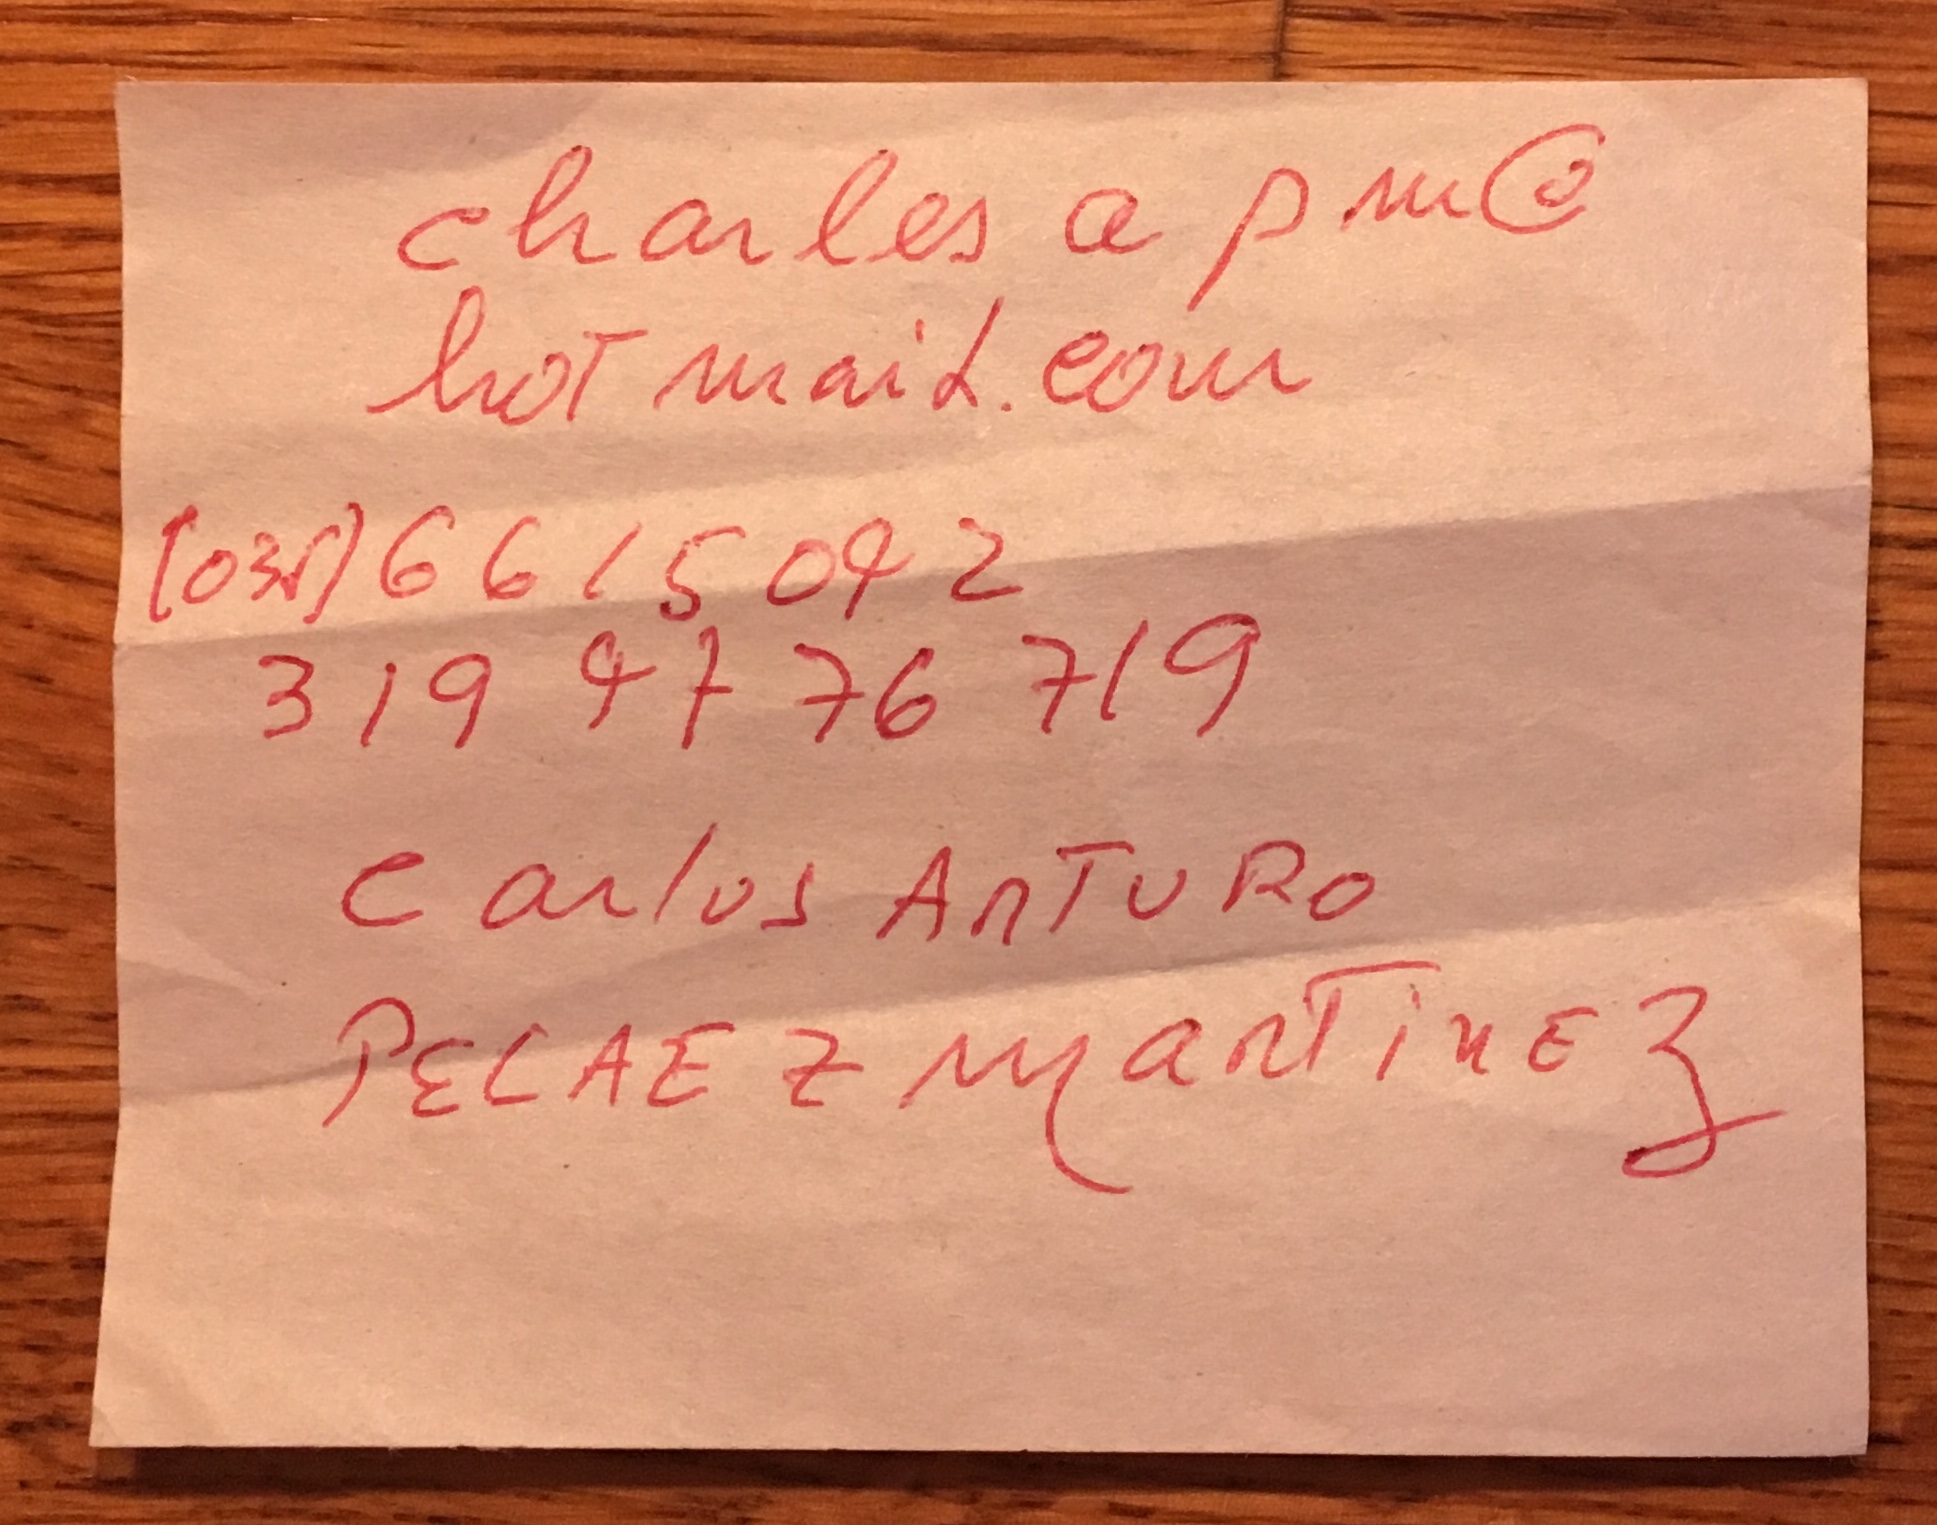 charles a pm@
hotmail.com
(035) 6615042
319 47 76 719
Carlos ARTURO
PELAEZ MARTiNEZ